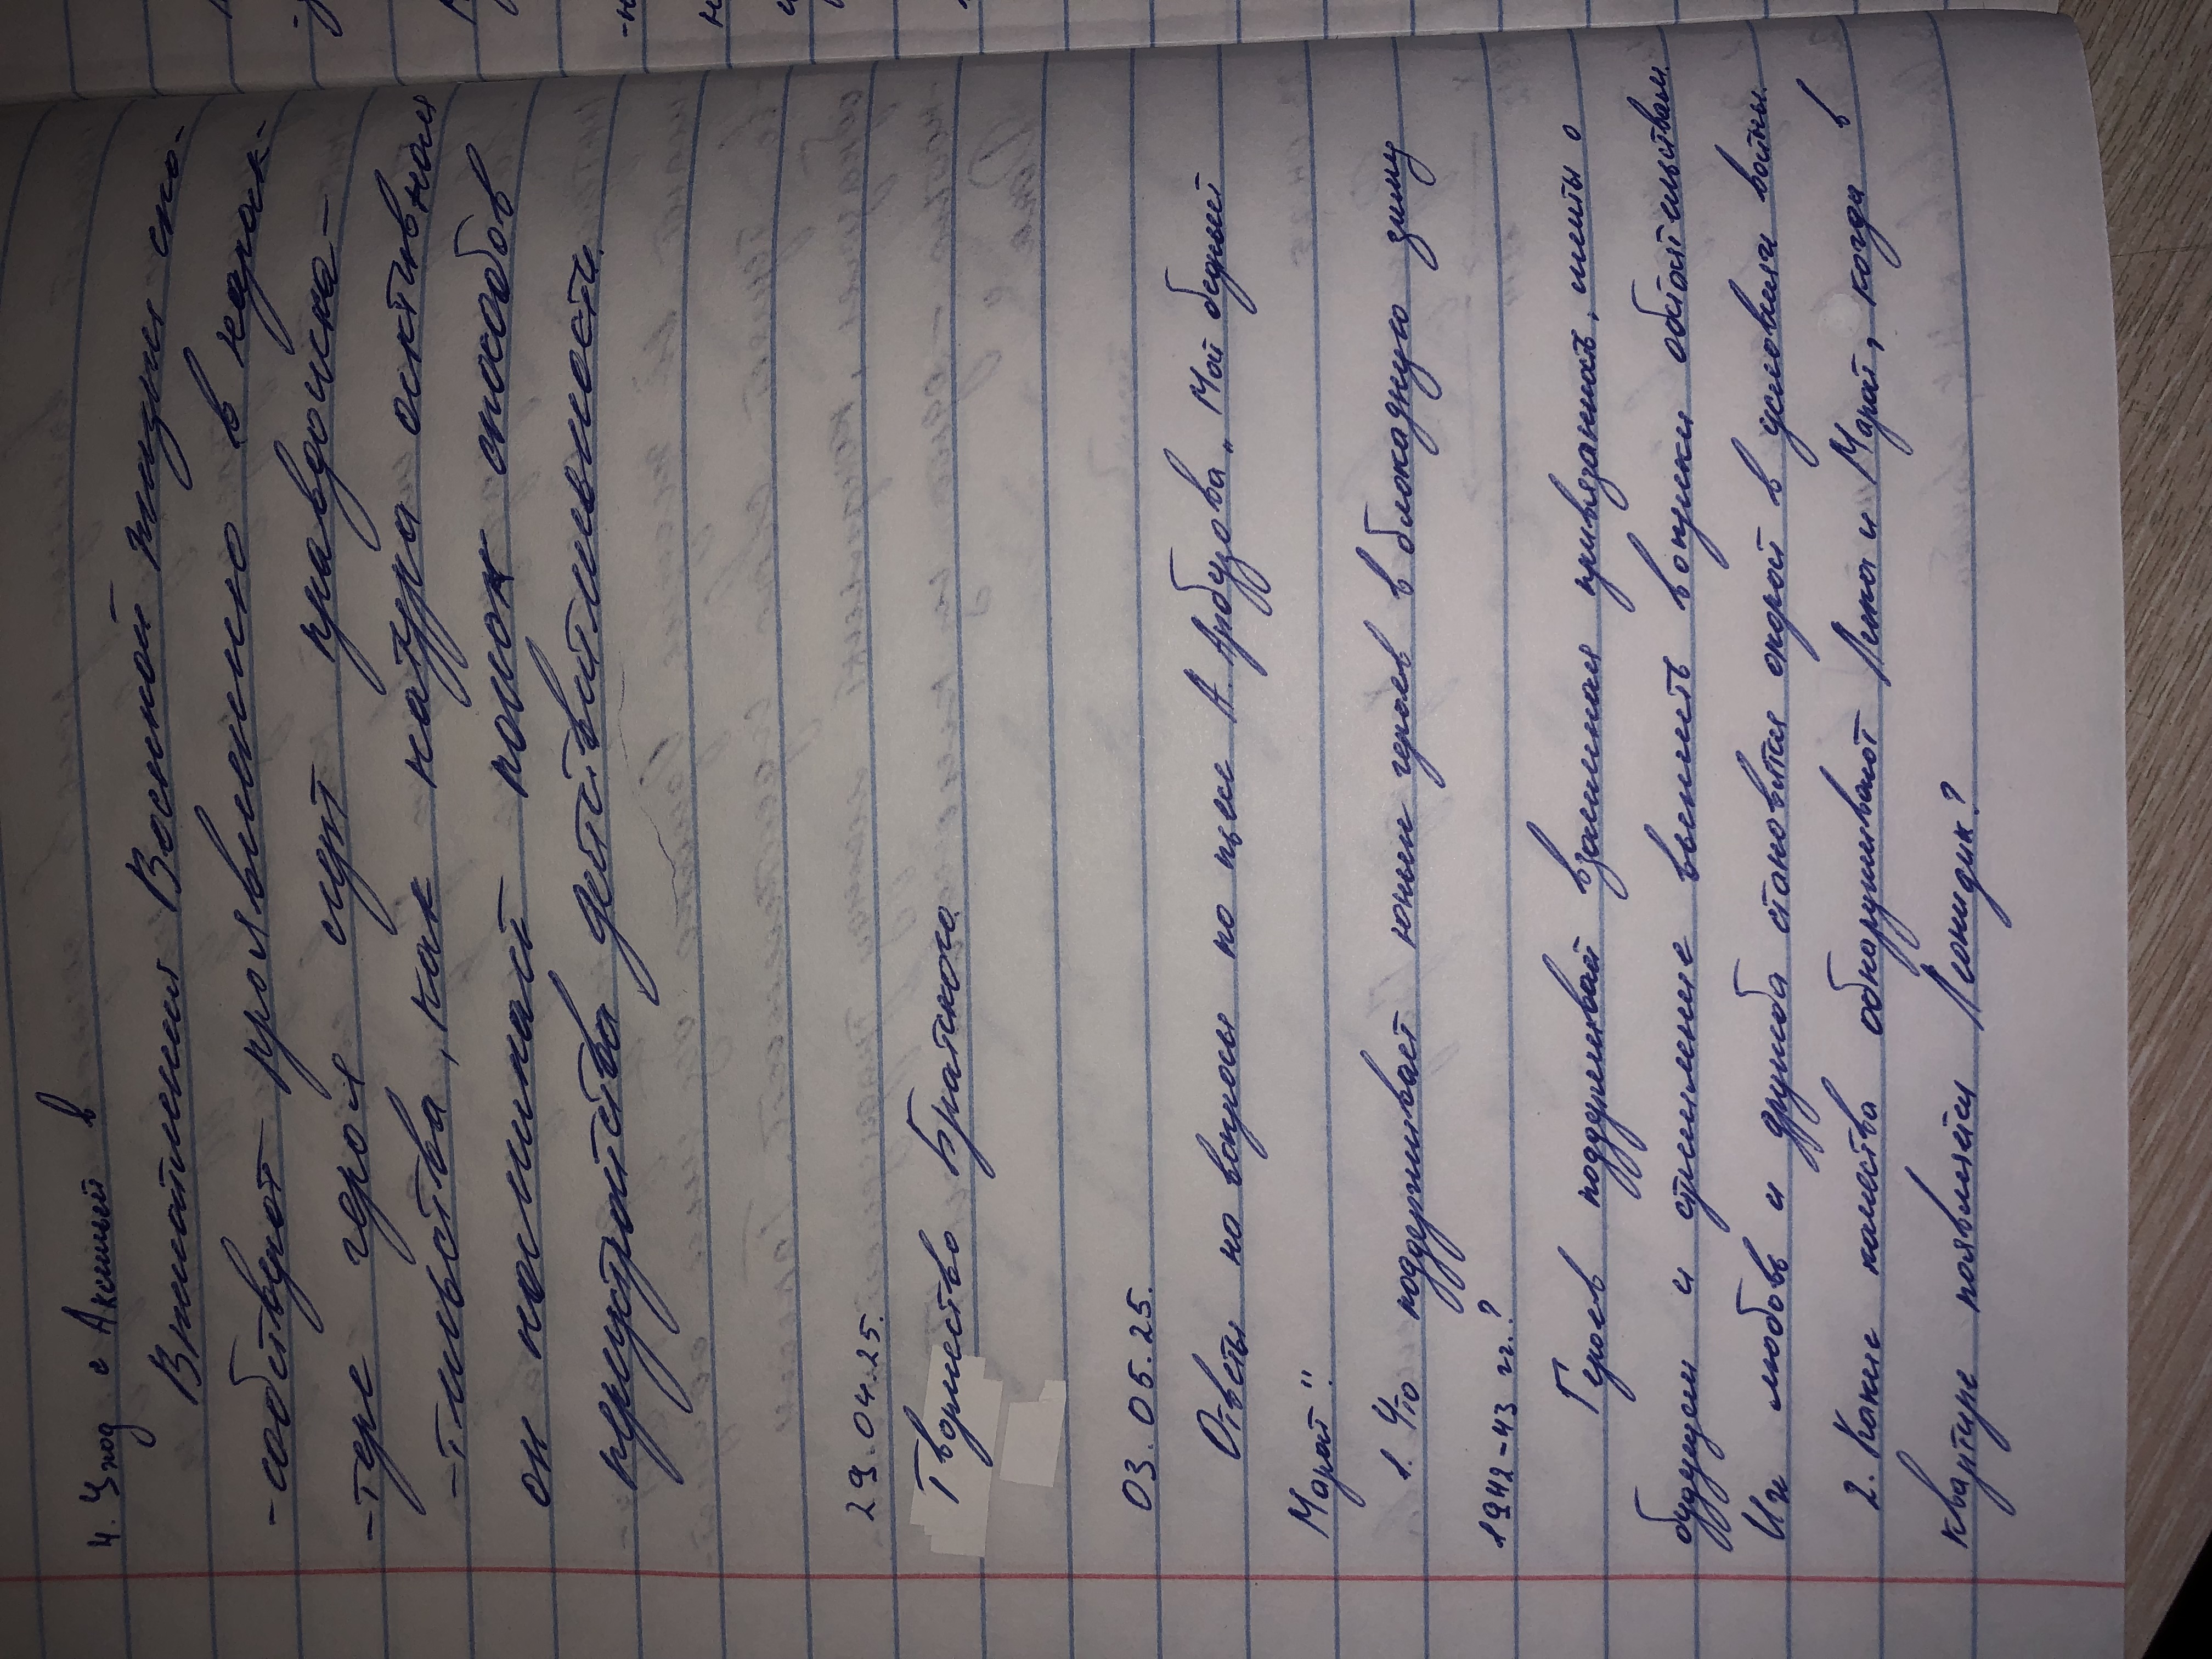 4. Уход с Аксиньей в
Впечатления Военной жизни спо-
-собствуют проявлению в харак-
-тере героя черт правдоиска-
-тельства, как натура активная
он начинает поиск способов
переустройства действительности.
29.04.25.
Творчество Братского
03.05.25.
Ответы на вопросы по пьесе А Арбузова „Мой бедный
Марат".
1. Что поддерживает юных героев в блокадную зиму
1942-43 гг.?
Героев поддерживает взаимная привязанность, мечты о
будущем и стремление выжить вопреки обстоятельствам.
Их любовь и дружба становятся опорой в условиях войны.
2. Какие качества обнаруживают Лика и Марат, когда в
квартире появляется Леонидик?